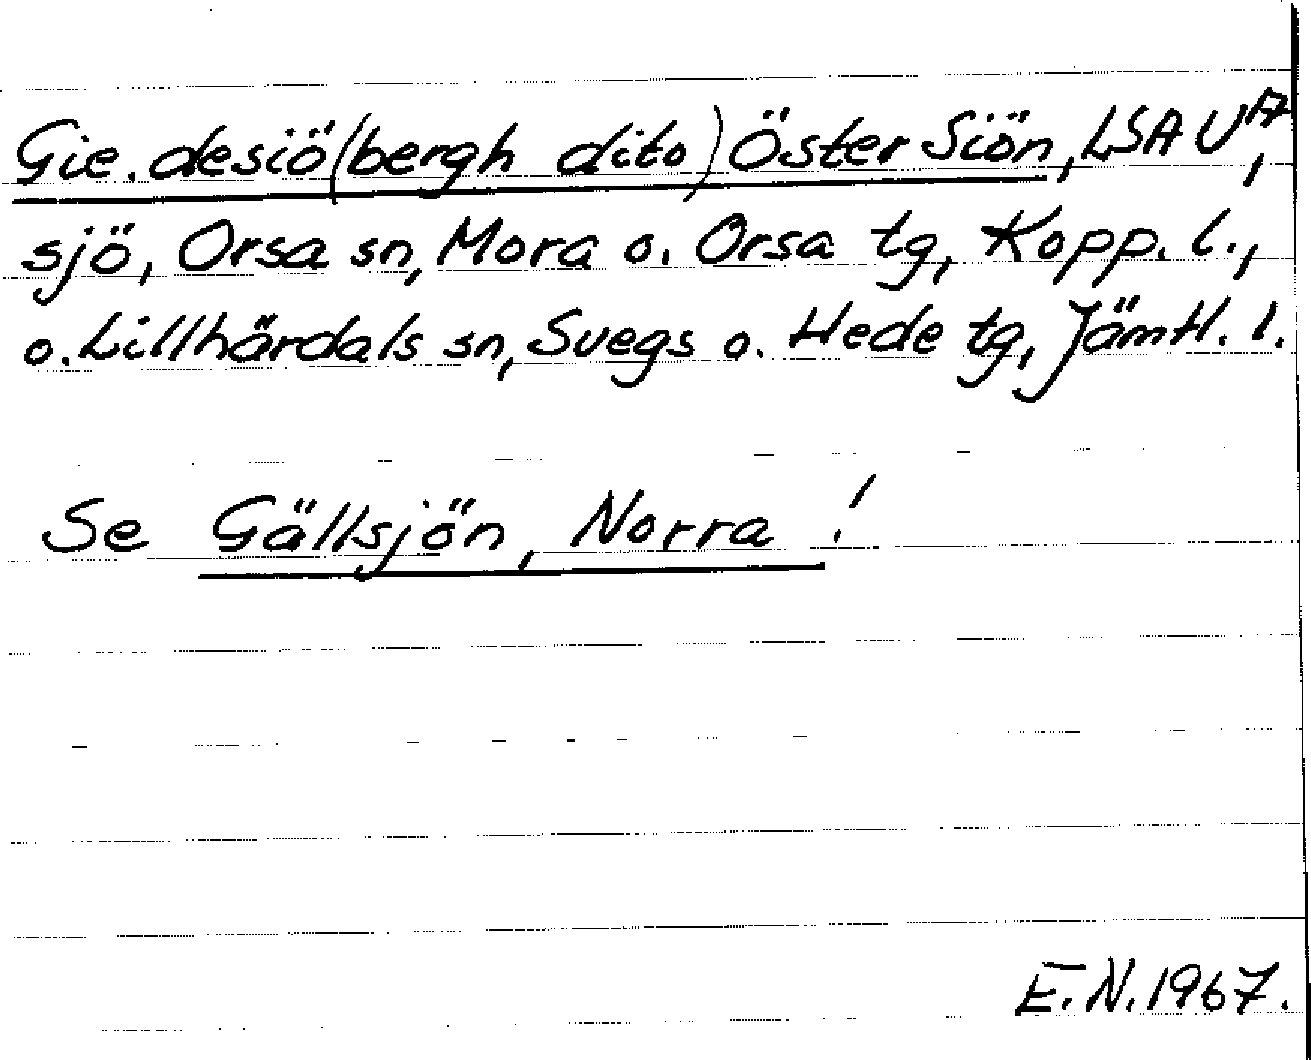 Gie.desiö (bergh dito) Öster Siön, LSA U^A,
sjö, Orsa sn, Mora o. Orsa tg, Kopp. l.,
o. Lillhärdals sn, Svegs o. Hede tg, Jämtl. l.
Se Gällsjön, Norra!
E.N. 1967.